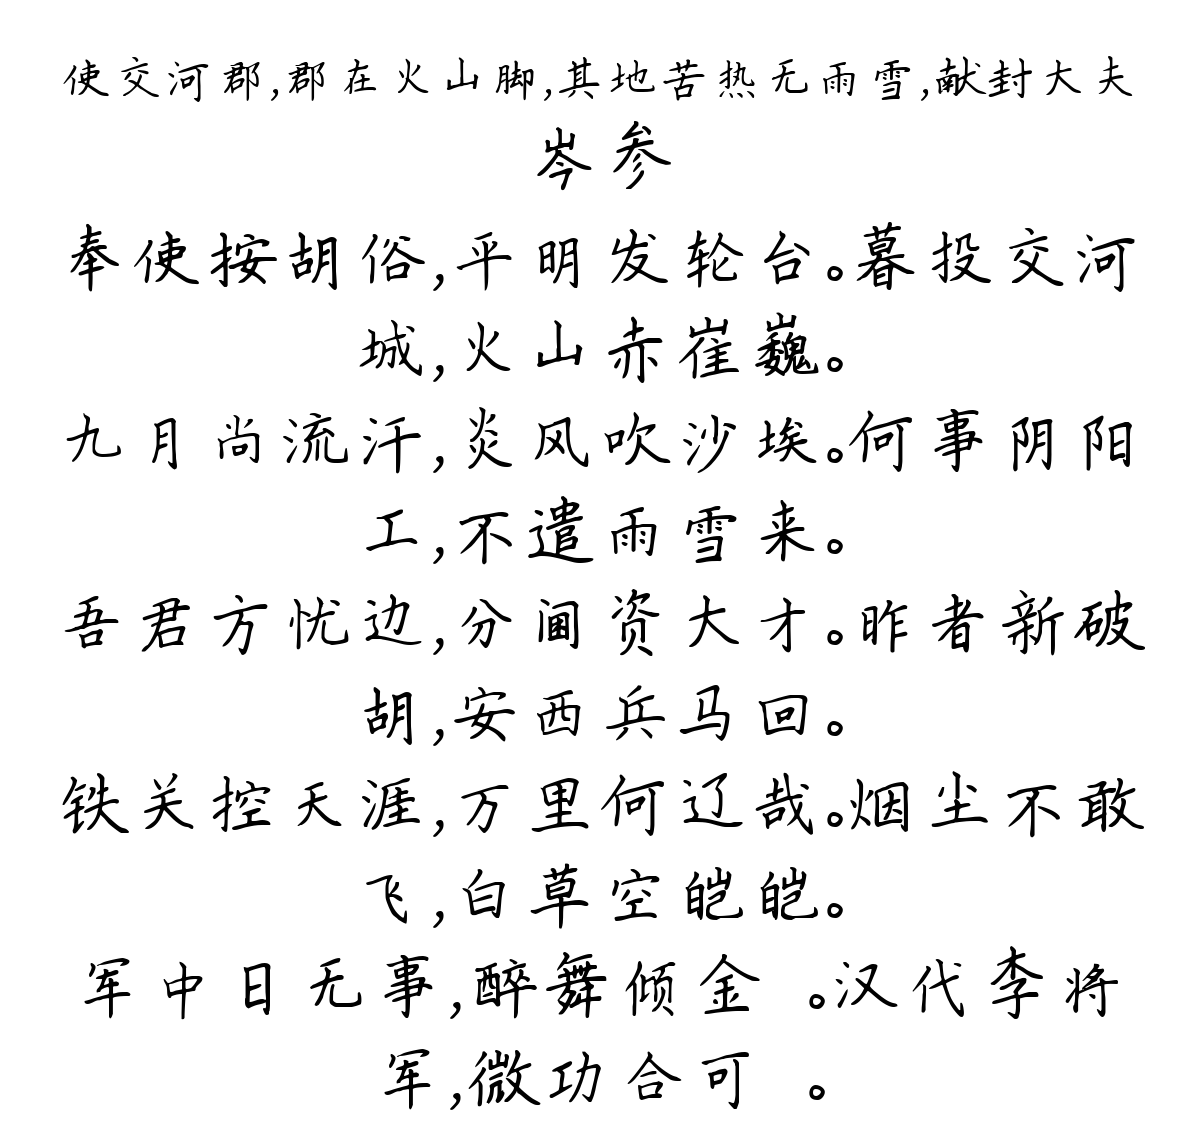 使交河郡,郡在火山脚,其地苦热无雨雪,献封大夫
岑参
奉使按胡俗,平明发轮台。暮投交河
城,火山赤崔巍。
九月尚流汗,炎风吹沙埃。何事阴阳
工,不遣雨雪来。
吾君方忧边,分阃资大才。昨者新破
胡,安西兵马回。
铁关控天涯,万里何辽哉。烟尘不敢
飞,白草空皑皑。
军中日无事,醉舞倾金 。汉代李将
军,微功合可 。